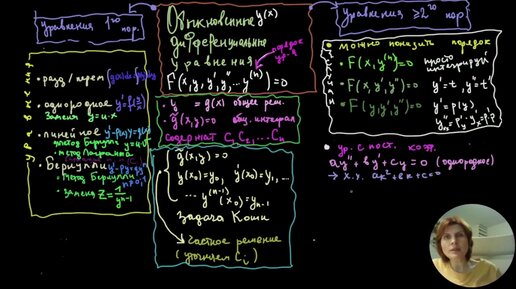 уравнения 1го пор.
Обыкновенные y(x)
дифференциальные
уравнения
порядок
F(x,y,y',y'',...y^(n))=0
уравнения ≥2го пор.
• разд/перем
• однородное y'=f(y/x)
замена y=u·x
• линейное
метод Бернулли y=u·v
• метод Лагранжа
• Бернулли
• метод Бернулли
• замена z=1/y^(n-1)
• y = g(x) общее реш.
• g̃(x,y)=0 общ. интеграл
содержат C₁ C₂,...Cn
g(x,y)=0
y(x₀)=y₀, y'(x₀)=y₁,...
... y^(n-1)(x₀)=y_(n-1)
Задача Коши
частное решение
(уточняем Ci)
• можно понизить порядок
• F(x,y^(n))=0 просто интегрируем
• F(x,y',y'')=0 y'=t, y''=t'
• F(y,y',y'')=0 y'=p(y)
• ур. с пост. коэф.
ay''+by'+cy=0 (однородное)
→ х.у. ak²+bk+c=0